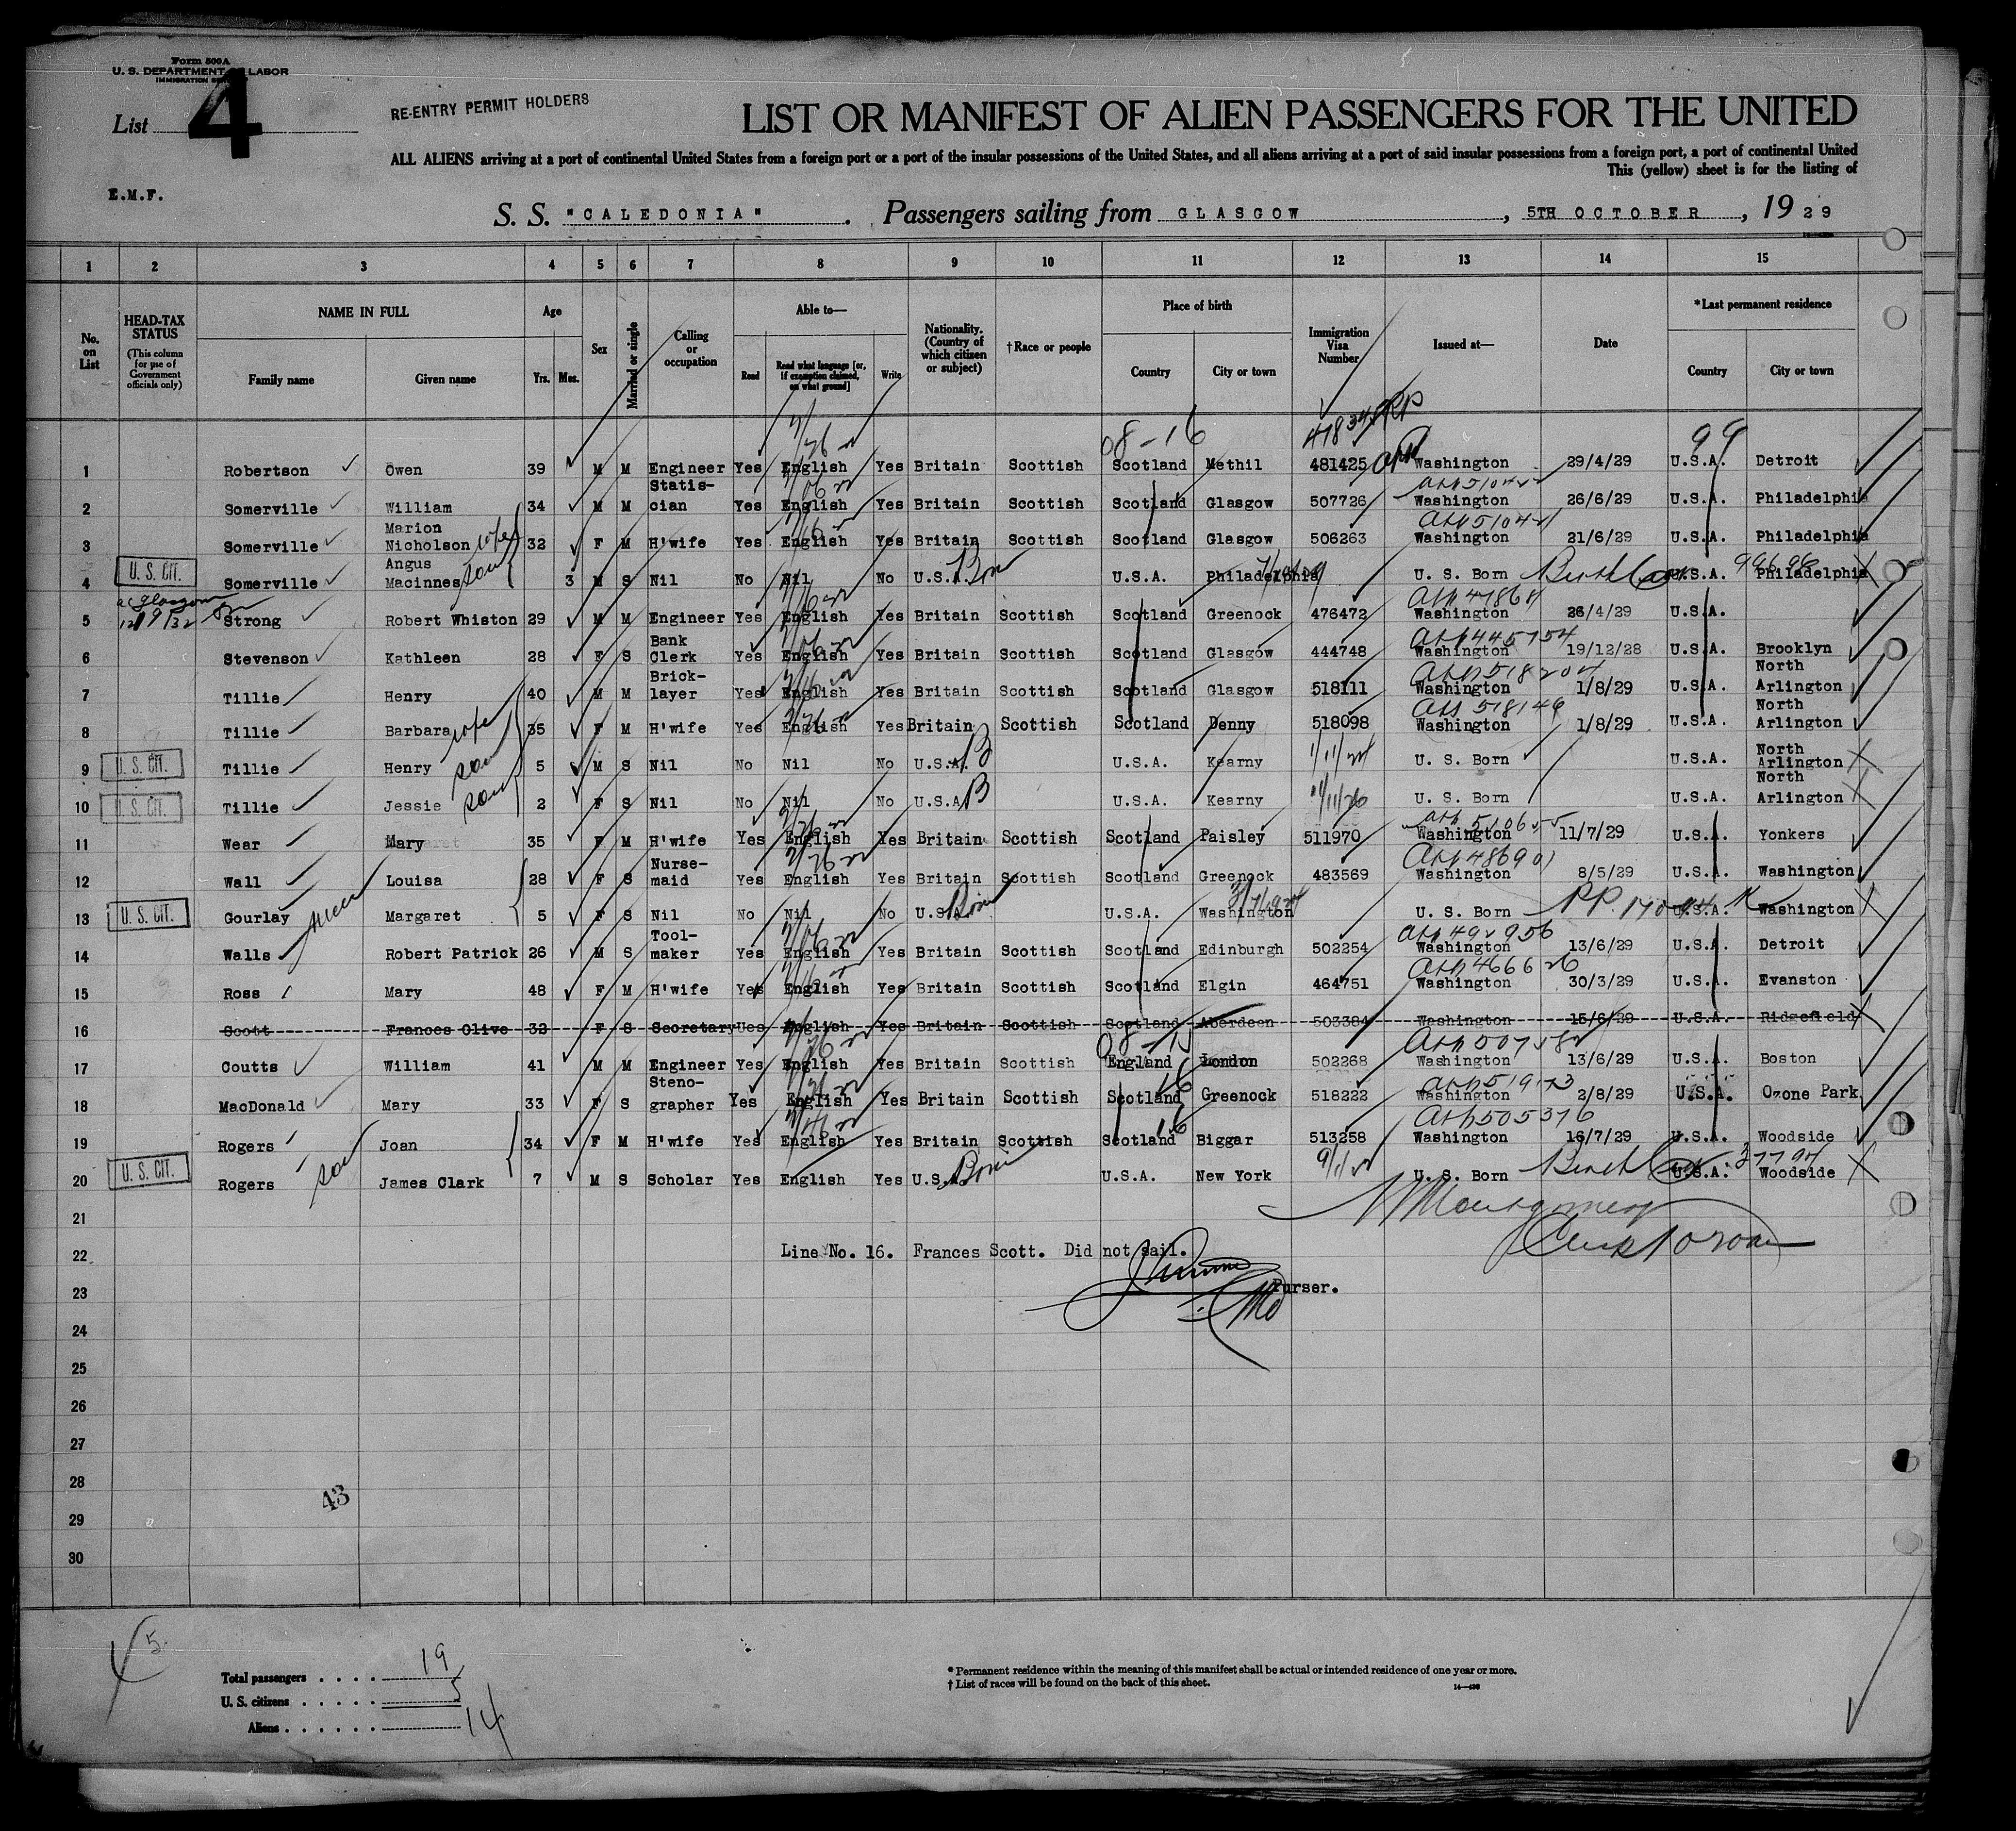 Form 500A
U. S. DEPARTMENT OF LABOR
IMMIGRATION
List 4
RE-ENTRY PERMIT HOLDERS
LIST OR MANIFEST OF ALIEN PASSENGERS FOR THE UNITED
ALL ALIENS arriving at a port of continental United States from a foreign port or a port of the insular possessions of the United States, and all aliens arriving at a port of said insular possessions from a foreign port, a port of continental United
This (yellow) sheet is for the listing of
E.M.F.
S. S. "CALEDONIA". Passengers sailing from GLASGOW, 5TH OCTOBER, 1929
1 2 3 4 5 6 7 8 9 10 11 12 13 14 15
No. on List
HEAD-TAX STATUS (This column for use of Government officials only)
NAME IN FULL Family name Given name
Age Yrs. Mos.
Sex
Married or single
Calling or occupation
Able to— Read Read what language [or, if exemption claimed, on what ground] Write
Nationality. (Country of which citizen or subject)
†Race or people
Place of birth Country City or town
Immigration Visa Number
Issued at—
Date
*Last permanent residence Country City or town
08-16 99
1 Robertson Owen 39 M M Engineer Yes English Yes Britain Scottish Scotland Methil 481425 Washington 29/4/29 U.S.A. Detroit
2 Somerville William 34 M M Statis-cian Yes English Yes Britain Scottish Scotland Glasgow 507726 Washington 26/6/29 U.S.A. Philadelphia
3 Somerville Marion Nicholson wife 32 F M H'wife Yes English Yes Britain Scottish Scotland Glasgow 506263 Washington 21/6/29 U.S.A. Philadelphia
4 U. S. CIT. Somerville Angus Macinnes son 3 M S Nil No Nil No U.S.A. Born U.S.A. Philadelphia U. S. Born U.S.A. Philadelphia
5 Strong Robert Whiston 29 M M Engineer Yes English Yes Britain Scottish Scotland Greenock 476472 Washington 26/4/29 U.S.A.
6 Stevenson Kathleen 28 F S Bank Clerk Yes English Yes Britain Scottish Scotland Glasgow 444748 Washington 19/12/28 U.S.A. Brooklyn
7 Tillie Henry 40 M M Brick-layer Yes English Yes Britain Scottish Scotland Glasgow 518111 Washington 1/8/29 U.S.A. North Arlington
8 Tillie Barbara wife 35 F M H'wife Yes English Yes Britain Scottish Scotland Denny 518098 Washington 1/8/29 U.S.A. North Arlington
9 U. S. CIT. Tillie Henry son 5 M S Nil No Nil No U.S.A. B U.S.A. Kearny U. S. Born U.S.A. North Arlington
10 U. S. CIT. Tillie Jessie 2 F S Nil No Nil No U.S.A. B U.S.A. Kearny 11/11/26 U. S. Born U.S.A. North Arlington
11 Wear Mary 35 F M H'wife Yes English Yes Britain Scottish Scotland Paisley 511970 Washington 11/7/29 U.S.A. Yonkers
12 Wall Louisa 28 F S Nurse-maid Yes English Yes Britain Scottish Scotland Greenock 483569 Washington 8/5/29 U.S.A. Washington
13 U. S. CIT. Gourlay Margaret 5 F S Nil No Nil No U.S.A. Born U.S.A. Washington U. S. Born U.S.A. Washington
14 Walls Robert Patrick 26 M S Tool-maker Yes English Yes Britain Scottish Scotland Edinburgh 502254 Washington 13/6/29 U.S.A. Detroit
15 Ross Mary 48 F M H'wife Yes English Yes Britain Scottish Scotland Elgin 464751 Washington 30/3/29 U.S.A. Evanston
16 Scott Frances Olive 32 F S Secretary Yes English Yes Britain Scottish Scotland Aberdeen 503384 Washington 15/6/29 U.S.A. Ridgefield
17 Coutts William 41 M M Engineer Yes English Yes Britain Scottish England London 502268 Washington 13/6/29 U.S.A. Boston
18 MacDonald Mary 33 F S Steno-grapher Yes English Yes Britain Scottish Scotland Greenock 518222 Washington 2/8/29 U.S.A. Ozone Park
19 Rogers Joan 34 F M H'wife Yes English Yes Britain Scottish Scotland Biggar 513258 Washington 16/7/29 U.S.A. Woodside
20 U. S. CIT. Rogers son James Clark 7 M S Scholar Yes English Yes U.S.A. Born U.S.A. New York U. S. Born U.S.A. Woodside
21
22 Line No. 16. Frances Scott. Did not sail.
23 Purser.
24
25
26
27
28
29
30
43
5.
Total passengers 19
U. S. citizens 5
Aliens 14
* Permanent residence within the meaning of this manifest shall be actual or intended residence of one year or more.
† List of races will be found on the back of this sheet.